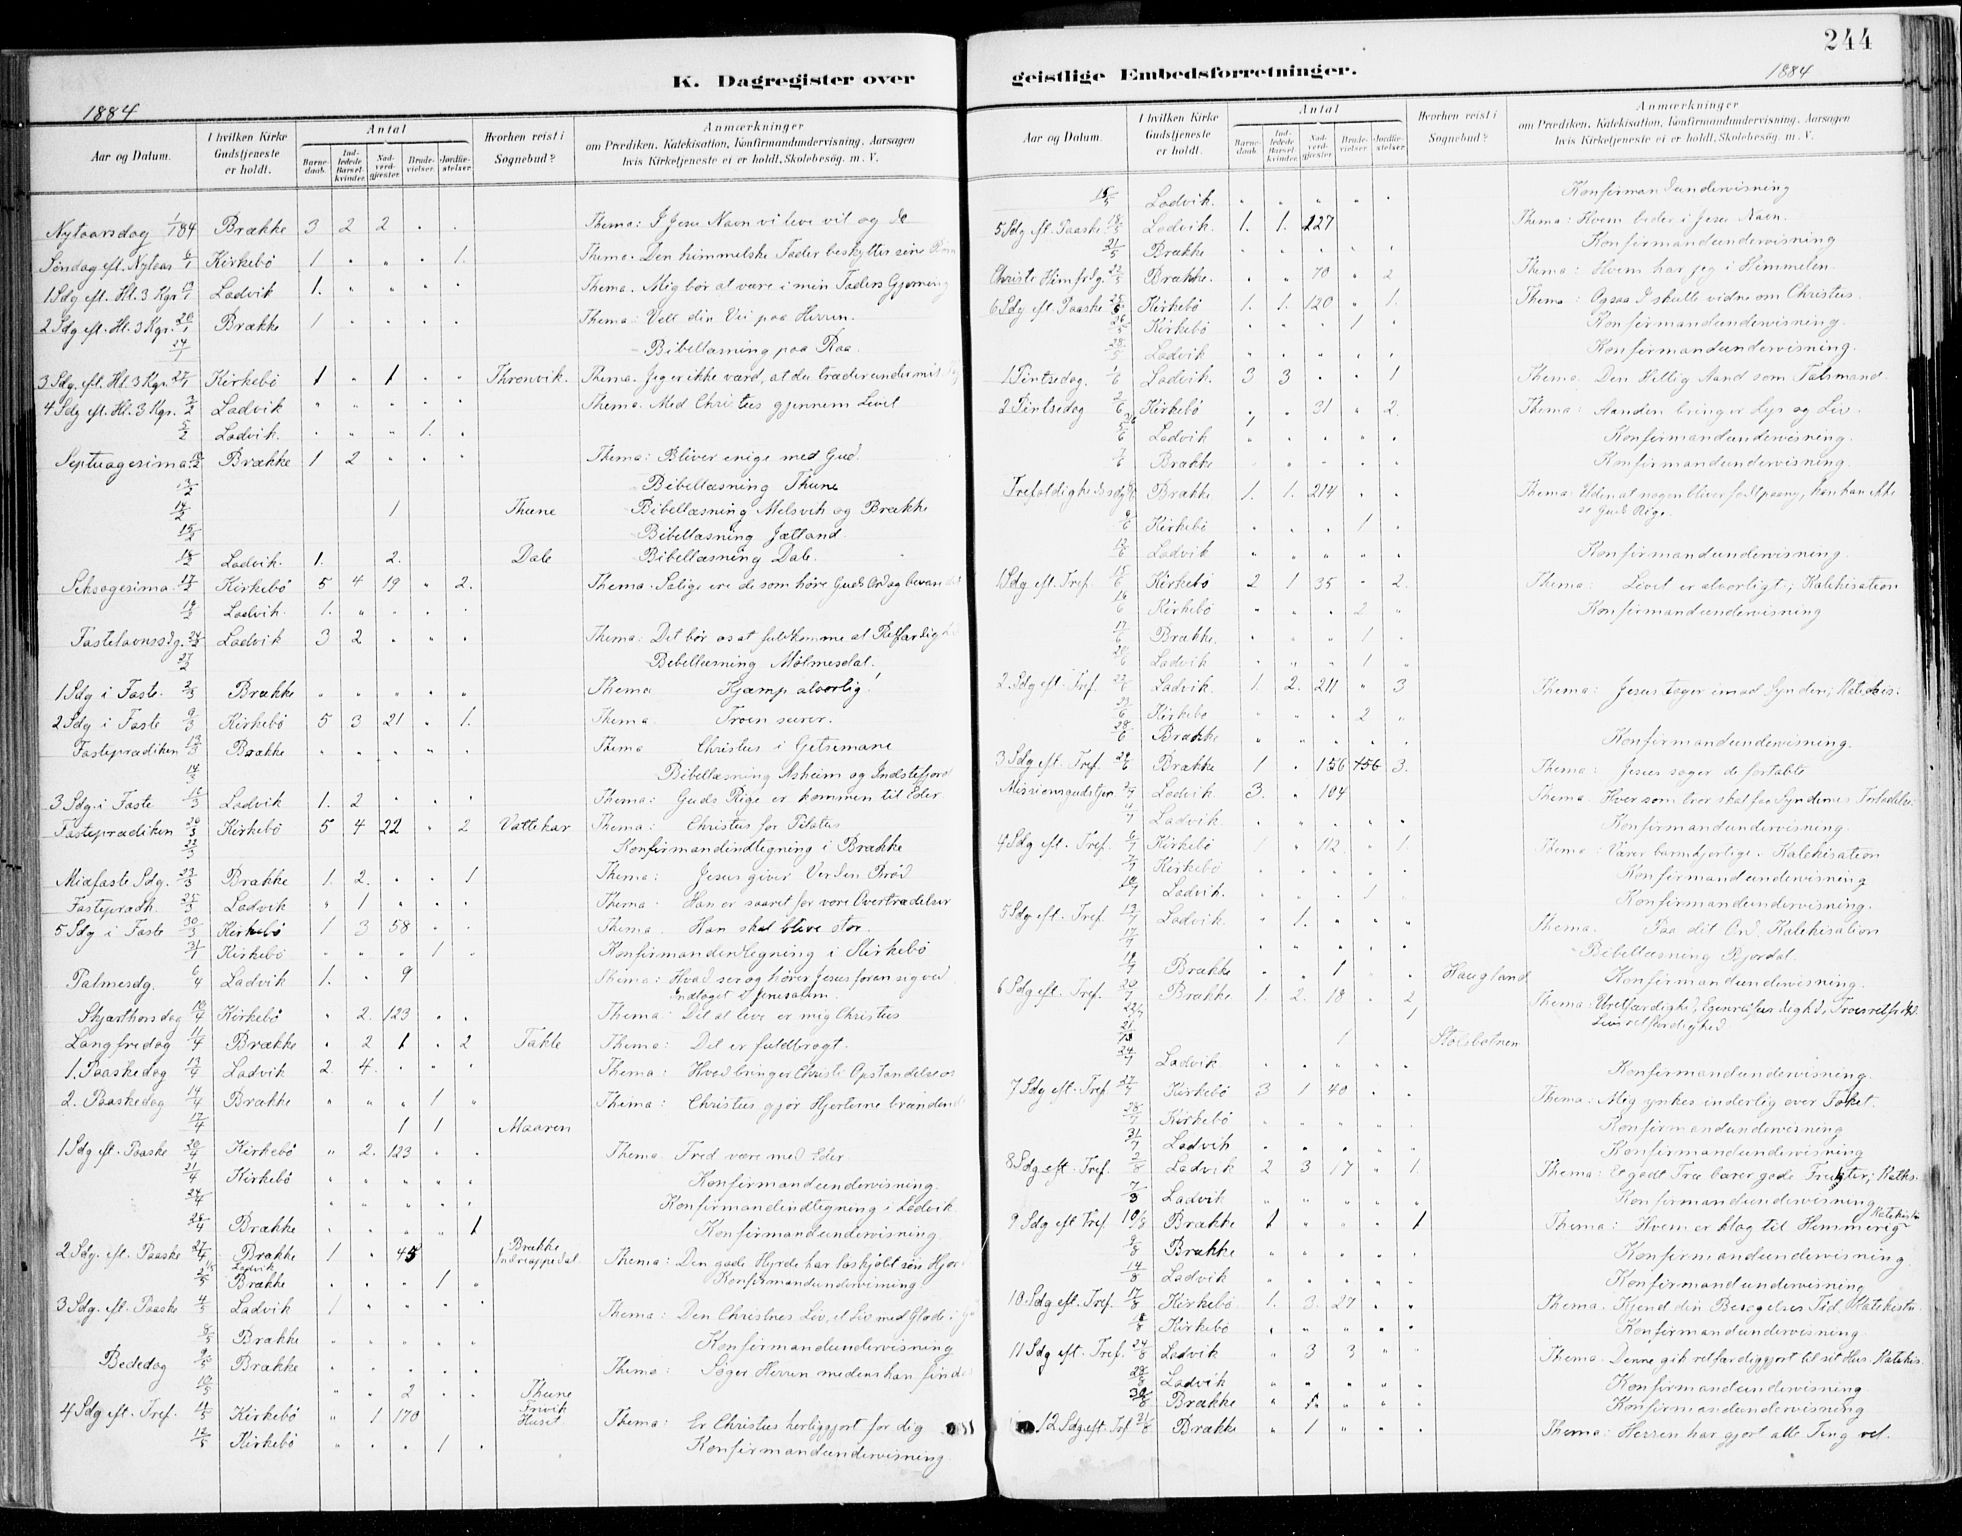 244
K. Dagregister over geistlige Embedsforretninger.
1884
1884
Aar og Datum.
I hvilken Kirke Gudstjeneste er holdt.
Antal
Barnedaab.
Indledede Barselkvinder.
Nadverdgjæster.
Brudevielser.
Jordfæstelser.
Hvorhen reist i Sognebud?
Anmærkninger
om Prædiken, Katekisation, Konfirmandundervisning, Aarsagen
hvis Kirketjeneste ei er holdt, Skolebesøg. m. V.
Nytaarsdag 1/1 84 Brække 3 2 2 . . Thema: I Jesu Navn vi leve vil og dø
Søndag eft. Nytaar 6/1 Kirkebö 1. . . . 1. Thema. Den himmelske Fader beskytter sine
1 Sdg eft. Hl. 3 Kgr. Ladvik 1. . . . . Thema. Mig bør at være i min Faders Gjerning
2 Sdg eft. Hl. 3 Kgr. 20/1 Brække 1 . . . . Thema: Velt din Vei paa Herren.
24/1 - Bibellæsning paa Raa.
3 Sdg. eft. Hl. 3 Kgr. 27/1 Kirkebö 1 . 1 . . Thronvik. Thema. Jeg er ikke værd, at du træder under mit
4 Sdg eft. Hl. 3 Kgr. 3/2 Ladvik . . . . . Thema. Med Christus gjennem Livet
5/2 Ladvik. . . . 1. .
Septuagesima. 10/2 Brække 1 2 . . . Thema: Bliver enige med Gud.
13/2 - Bibellæsning Thune
14/2 1 Thune - Bibellæsning Melsvik og Brække
15/2 - Bibellæsning Jetland.
Ladvik. 1. 2. Dale - Bibellæsning Dale.
Seksagesima. 17/2 Kirkebö 5 4 19 . 2. Thema. Salige ere de som høre Guds Ord og bevare det
Ladvik. 1. . . . .
Fastelavnssdg. 24/2 Ladvik 3 2 . . . Thema: Det bør os at fuldkomme al Retfærdighed
27/2 Bibellæsning Mølmesdal.
1 Sdg i Faste. 2/3 Brække . . . . . Thema Kjæmp alvorlig!
2 Sdg i Faste 9/3 Kirkebö 5 3 21 . 1. Thema. Troen seirer.
Fasteprædiken 13/3 Brække . . . . . Thema Christus i Getsemane
14/3 Bibellæsning Asheim og Indstefjord
3 Sdg. i Faste 16/3 Ladvik 1. 2 . . . Thema: Guds Rige er kommen til Eder
Fasteprædiken 20/3 Kirkebö 5 4 22 . 2 Vattekar Thema: Christus for Pilatus
Konfirmandindtegning i Brække
Midfaste Sdg. 23/3 Brække 1. 2. . . 1 Thema: Jesus giver Verden Brød
Fasteprædk. 25/3 Ladvik . 1 . . . Thema: Han er saaret for vore Overtrædelser
5 Sdg i Faste 30/3 Kirkebö 1 3 58 . . Thema. Han skal blive stor.
Kirkebö . . . 1 . Konfirmandindtegning i Kirkebö
Palmesdg. 6/4 Ladvik 1. . 9 Thema: Hvad ser og hører Jesus foran sig ved
Indtoget i Jerusalem.
Skjærthorsdag 10/4 Kirkebö . 2. 123 . . Thema: Det at leve er mig Christus
Langfredag 11/4 Brække . 2 1 . 2 Takle Thema: Det er fuldbragt.
1. Paaskedag 13/4 Ladvik 2 4. . . . Thema: Hvad bringer Christi Opstandelse os
2. Paaskedag 14/4 Brække . . . 1 . Thema: Christus gjør Hjerterne brændende
17/4 1 1 Maaren
1 Sdg eft. Paaske 20/4 Kirkebö . 2. 123 . . Thema Fred være med Eder
21/4 Kirkebö . . . . . Konfirmandundervisning.
24/4 . . . . . Konfirmandindtegning i Ladvik
Brække . . . . 1 Konfirmandundervisning.
2 Sdg. eft. Paaske 27/4 Brække 1 . 45 Brække Thema: Den gode Hyrde har løskjøbt sin Hjord
Ladvik
2/5 Brække . . . 1 . Konfirmandundervisning
3 Sdg. eft. Paaske 4/5 Ladvik 1 . . . . Thema: Den Christnes Liv, et Liv med Glæde i
8/5 Brække . . . . . Konfirmandundervisning
Bededag 9/5 Brække . . . . . Thema: Søger Herren medens han findes
10/5 . . 2 . . Thune
4 Sdg eft. Tref. 11/5 Kirkebö . 1 170 Huset Thema: Er Christus herliggjort for dig
12/5 Kirkebö . . . 1 . Konfirmandundervisning.
Aar og Datum.
I hvilken Kirke Gudstjeneste er holdt.
Antal
Barnedaab.
Indledede Barselkvinder.
Nadverdgjæster.
Brudevielser.
Jordfæstelser.
Hvorhen reist i Sognebud?
Anmærkninger
om Prædiken, Katekisation, Konfirmandundervisning, Aarsagen
hvis Kirketjeneste ei er holdt, Skolebesøg. m. V.
15/5 Ladvik. . . . . . Konfirmandundervisning
5 Sdg eft. Paaske 18/5 Ladvik. 1. 1. 127 Thema: Hvem beder i Jesu Navn.
21/5 Brække . . . . . Konfirmandundervisning
Christi Himfrdg. 22/5 Brække. . . 70 . 2 Thema: Hvem har jeg i Himmelen.
6 Sdg eft. Paaske 25/5 Kirkebö 1. 1. 120 . 1. Thema: Ogsaa I skulle vidne om Christus.
26/5 Kirkebö . . . 1 . Konfirmandundervisning.
28/5 Ladvik . . . . . Konfirmandundervisning.
1 Pintsedag. 1/6 Ladvik. 3 3 . . 1 Thema. Den Hellig Aand som Talsmand.
2 Pintsedag 2/6 Kirkebö . . 31 . 2. Thema: Aanden bringer Lys og Liv.
5/6 Ladvik . . . . . Konfirmandundervisning.
7/6 Brække . . . . . Konfirmandundervisning.
Trefoldighedssdg 8/6 Brække 1. 1. 214 . . Thema: Uden at nogen bliver født paany, kan han ikke
se Guds Rige.
9/6 Kirkebö . . . 1 .
12/6 Ladvik . . . . . Konfirmandundervisning.
1 Sdg eft. Tref. 15/6 Kirkebö 2 1 35 . 2. Thema: Livet er alvorligt; Katekisation
16/6 Kirkebö . . . 2 . Konfirmandundervisning
17/6 Brække. . . . 1 .
20/6 Ladvik . . . 1 .
2 Sdg eft. Tref. 22/6 Ladvik. 1. 2. 211 . 3 Thema: Jesus tager imod Syndere; Katekis:
Kirkebö . . . 2 .
28/6 Brække . . . . . Konfirmandundervisning.
3 Sdg eft. Tref. 29/6 Brække 1 . 156 156 3. Thema: Jesus søger de fortabte
Missionsgudstjen. 2/7 Ladvik 3. . 104 Thema. Hver som tror skal faa Syndernes Forladelse
4/7 Ladvik. . . . . . Konfirmandundervisning
4 Sdg eft. Tref. 6/7 Kirkebö 1 . 112 . 1. Thema: Værer barmhjertige. Katekisation
7/7 Kirkebö . . . . . Konfirmandundervisning
10/7 Ladvik. . . . 1 . Konfirmandundervisning.
5 Sdg eft. Tref. 13/7 Ladvik. . 1. . . . Thema. Paa dit Ord. Katekisation
17/7 . . . . . - Bibellæsning
Brække . . 1 . . Haugland Konfirmandundervisning.
6 Sdg eft. Tref. 20/7 Brække 1. 2. 18 . 2 Thema: Uretfærdighed, Egenretfærdighed, Troesretfærd.
1 Livsretfærdighed
1 Stølsbotnen
24/7 Ladvik . . . . . Konfirmandundervisning.
7 Sdg eft. Tref 27/7 Kirkebö 3 1 40 . . Thema: Mig ynkes inderlig over Folket.
28/7 Kirkebö . . . . . Konfirmandundervisning
31/7 Ladvik . . . . . Konfirmandundervisning
8 Sdg. eft. Tref. 3/8 Ladvik 2 3 17 . 1. Thema: Et godt Træ bærer gode Frugter; Katks.
Ladvik . . . . . Konfirmandundervisning
9 Sdg eft Tref 10/8 Brække 1 . . . 1 Thema: Hvem er klog til Himmerig? Katekisa
9/8 Brække . . . . . Konfirmandundervisning.
14/8 Ladvik . . . . . Konfirmandundervisning
10. Sdg eft. Tref. 17/8 Kirkebö. 1. 3. 27 . . Thema. Kjend din Besøgelses Tid. Katekista.
Kirkebö . . . . . Konfirmandundervisning.
11 Sdg eft. Tref. 24/8 Ladvik . 3 3 . . Thema. Denne gik retfærdiggjort til sit Hus. Katekis.
28/8 Ladvik . . . . . Konfirmandundervisning.
30/8 Brække . 1. . . . Konfirmandundervisning
12 Sdg eft. Tref 31/8 Brække . 1 . . . Thema: Herren har gjort alle Ting vel.